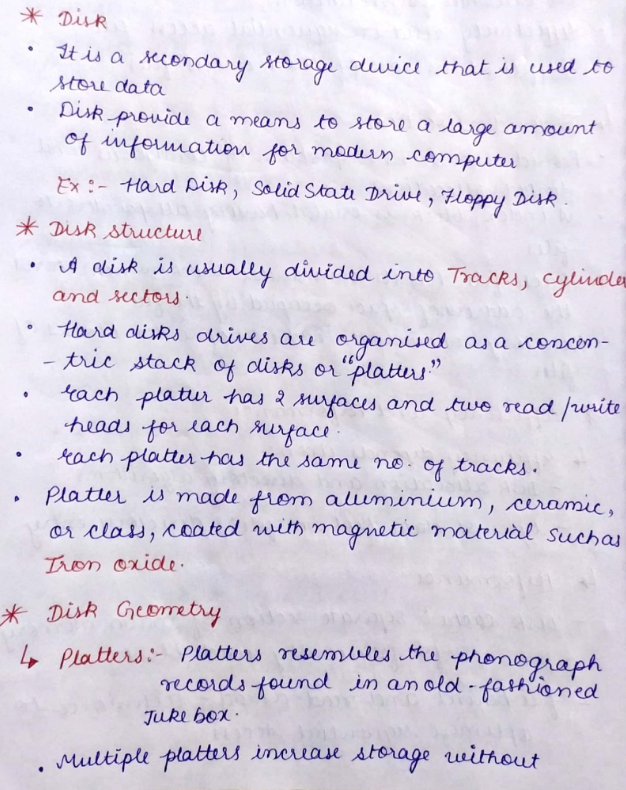 * Disk
• It is a secondary storage device that is used to
store data
• Disk provide a means to store a large amount
of information for modern computer
Ex :- Hard Disk, Solid State Drive, Floppy Disk.
* Disk structure
• A disk is usually divided into Tracks, cylinder
and sectors.
• Hard disks drives are organised as a concen-
- tric stack of disks or "platters"
• Each platter has 2 surfaces and two read/write
heads for each surface.
• Each platter has the same no. of tracks.
• Platter is made from aluminium, ceramic,
or class, coated with magnetic material such as
Iron oxide.
* Disk Geometry
↳ Platters:- Platters resembles the phonograph
records found in an old-fashioned
Juke box.
• Multiple platters increase storage without